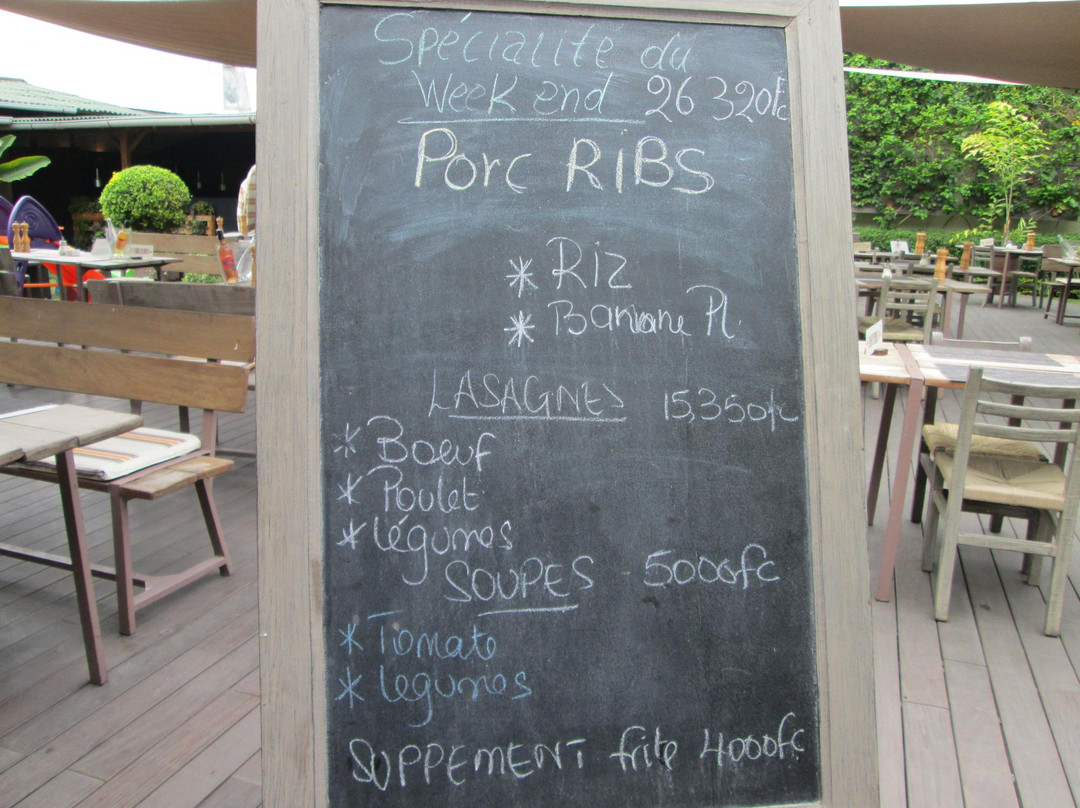 Spécialité du
Week end 26 320Fc
Porc RIBS
* Riz
* Banane Pl.
LASAGNES 15,350fc
* Boeuf
* Poulet
* légumes
SOUPES 5000fc
* Tomate
* legumes
SUPPEMENT frite 4000fc